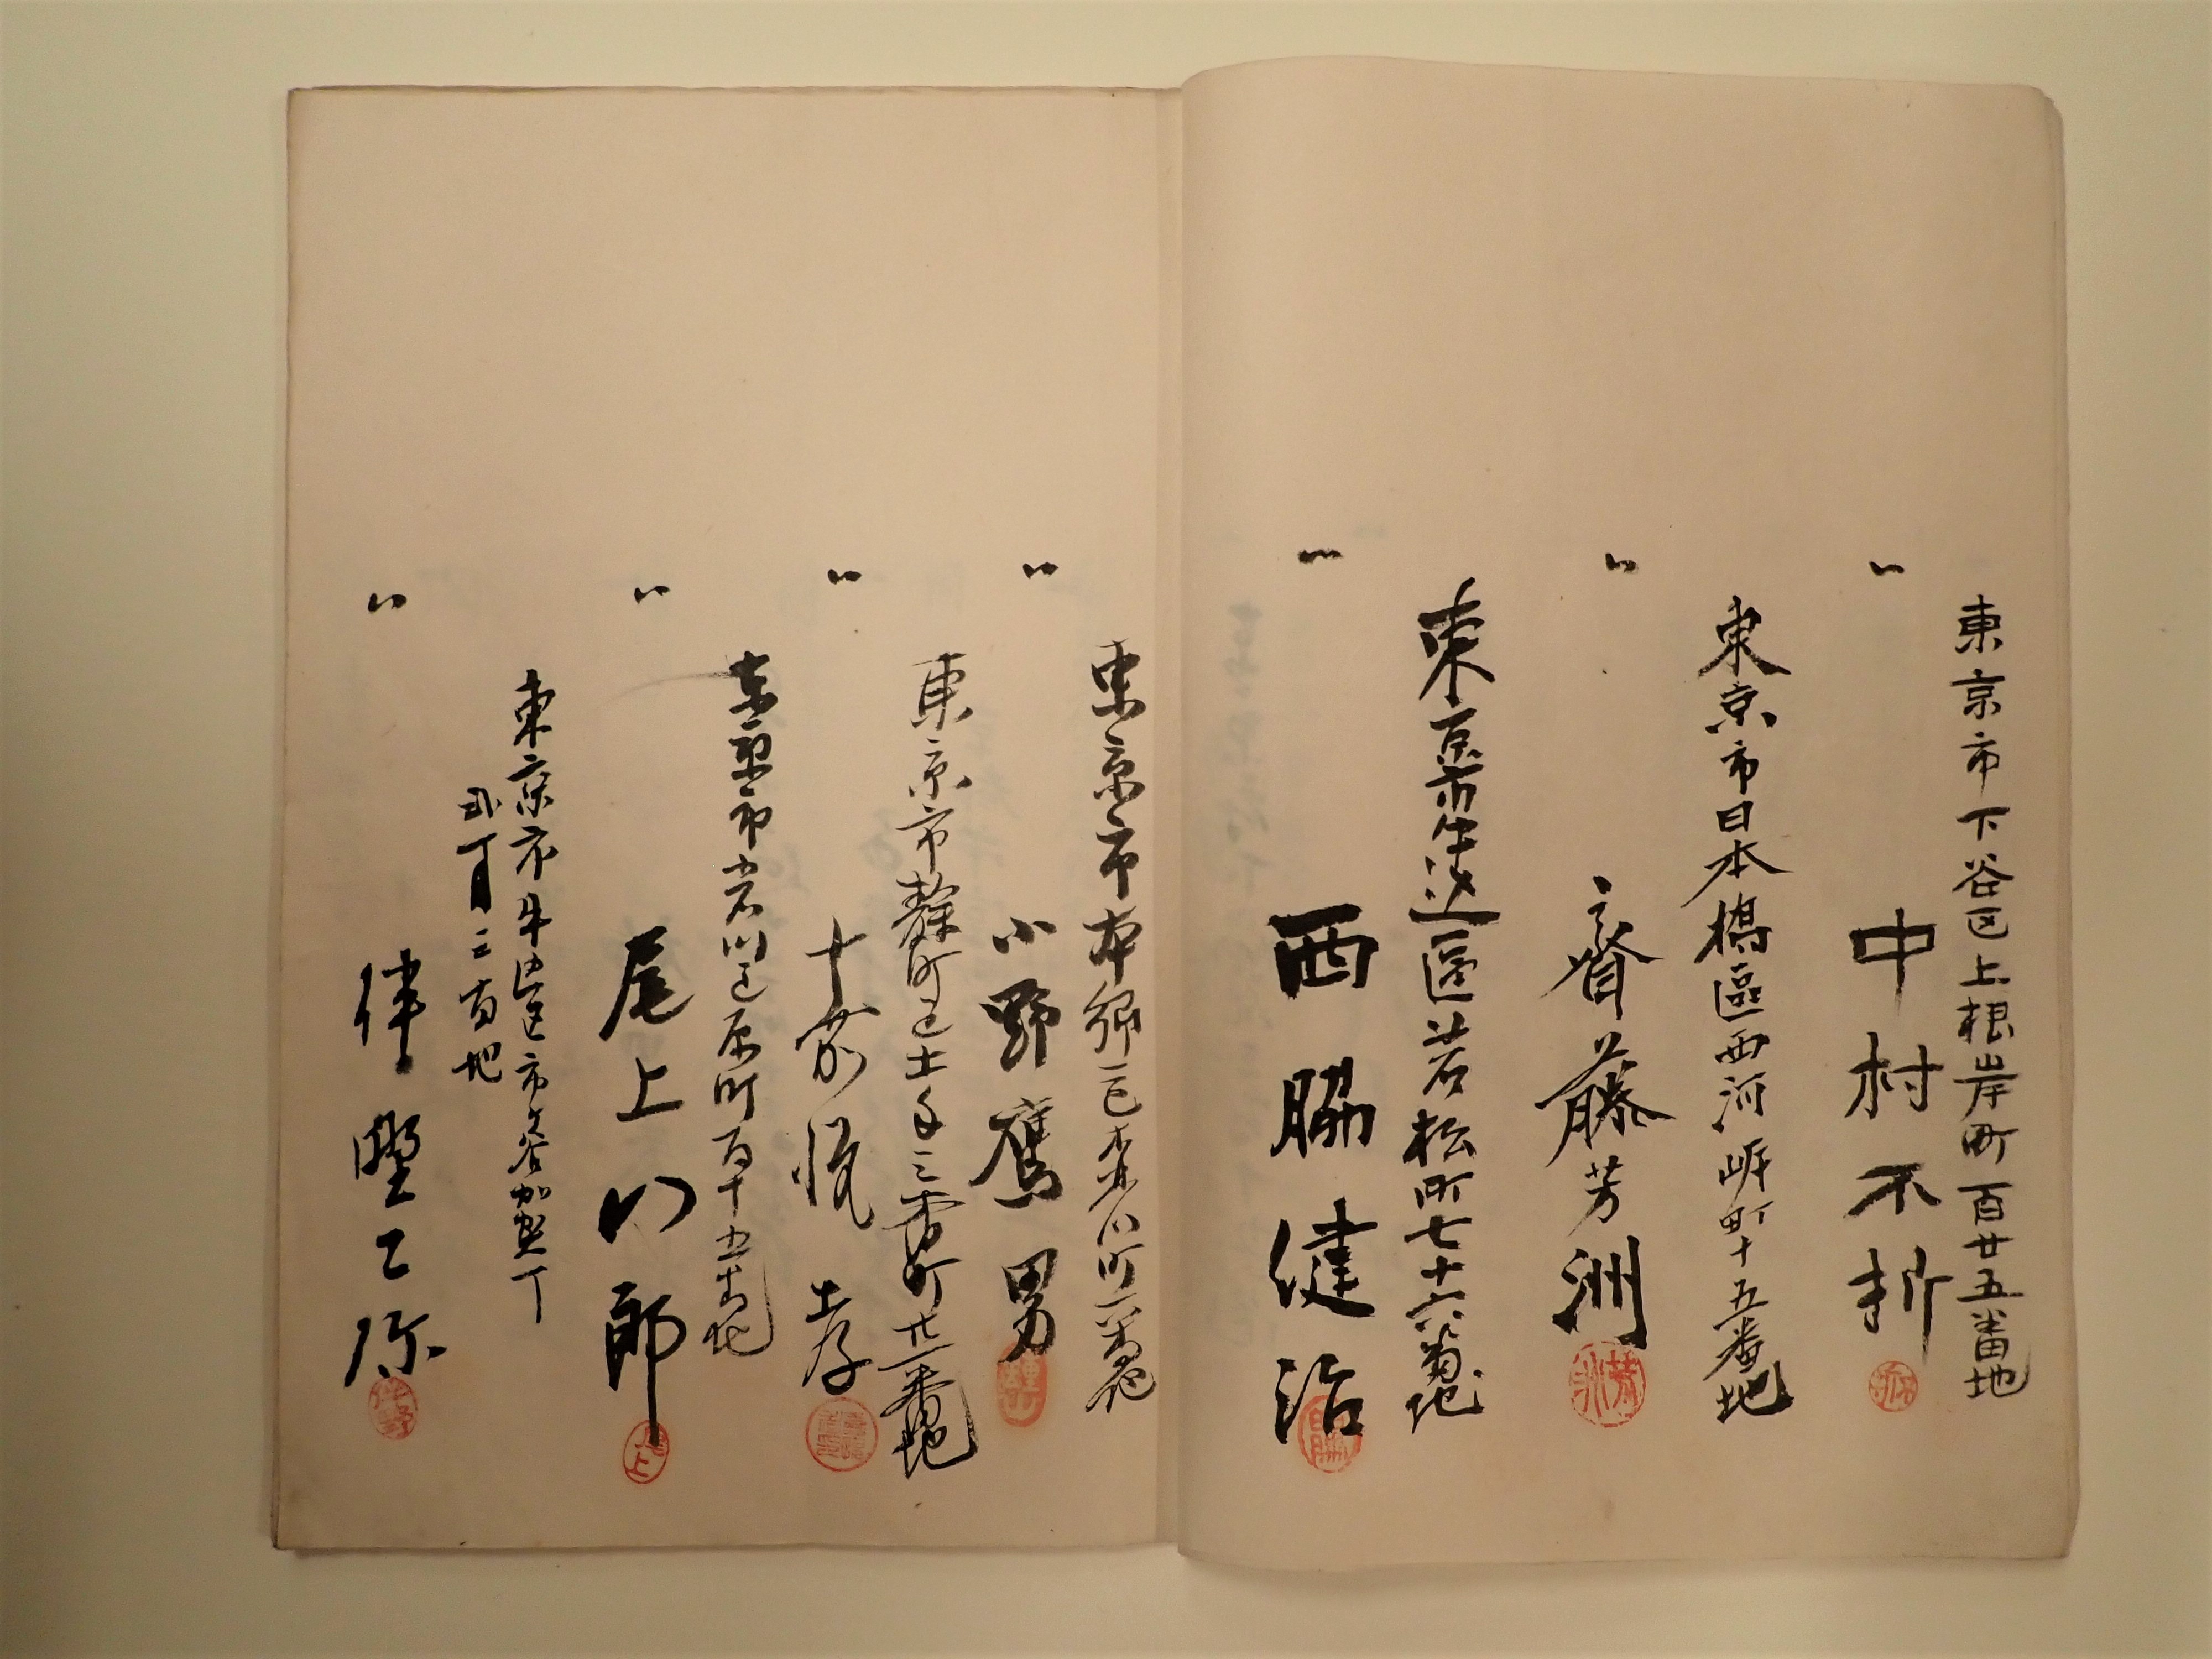 東京市下谷区上根岸町百廿五番地
〃 中村不折
東京市日本橋區西河岸町十五番地
〃 齋藤芳洲
東京市牛込區若松町七十六番地
〃 西脇健治
東京市本郷区森川町一番地
〃 小野鵞男
東京市麹町区土手三番町廿一番地
〃
東京市小石川区原町百十五番地
〃 尾上八郎
東京市牛込区市谷加賀丁
弐丁目二番地
〃 伴野乙弥